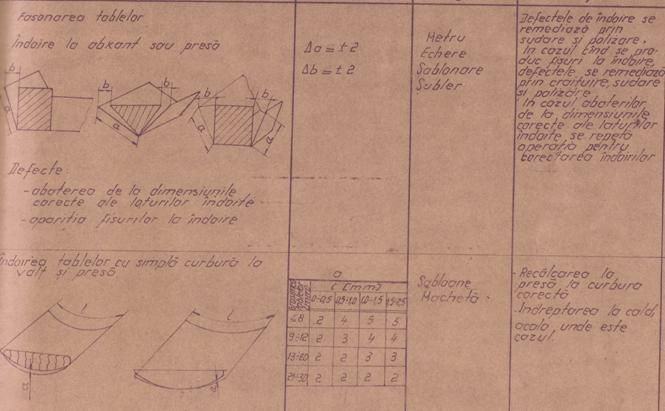 Fasonarea tablelor
Îndoire la abkant sau presă
b
a
b
b
a
b
b
a
a
Defecte:
-abaterea de la dimensiunile
corecte ale laturilor îndoite
-apariția fisurilor la îndoire
Δa = ± 2
Δb = ± 2
Metru
Echere
Șablonare
Șubler
Defectele de îndoire se
remediază prin
sudare și polizare.
În cazul cînd se pro-
duc fisuri la îndoire,
defectele se remediază
prin craituire, sudare
și polizare
În cazul abaterilor
de la dimensiunile
corecte ale laturilor
îndoite se repetă
operația pentru
corectarea îndoirilor
Îndoirea tablelor cu simplă curbură la
valț și presă
l
l
a
a
a
l [mm]
0÷0,5 0,5÷1,0 1,0÷1,5 1,5÷2,5
≤8 2 4 5 5
9÷12 2 3 4 4
13÷20 2 2 3 3
21÷30 2 2 2 2
Șabloane
Machetă
-Recălcarea la
presă la curbura
corectă
-Îndreptarea la cald,
acolo, unde este
cazul.